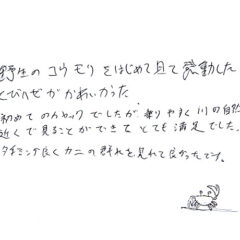 野生のコウモリをはじめて見て感動した
とびハゼがかわいかった
初めてのカヤックでしたが、乗りやすく川の自然
近くで見ることができてとても満足でした。
タイミング良くカニの群れを見れて良かったです。